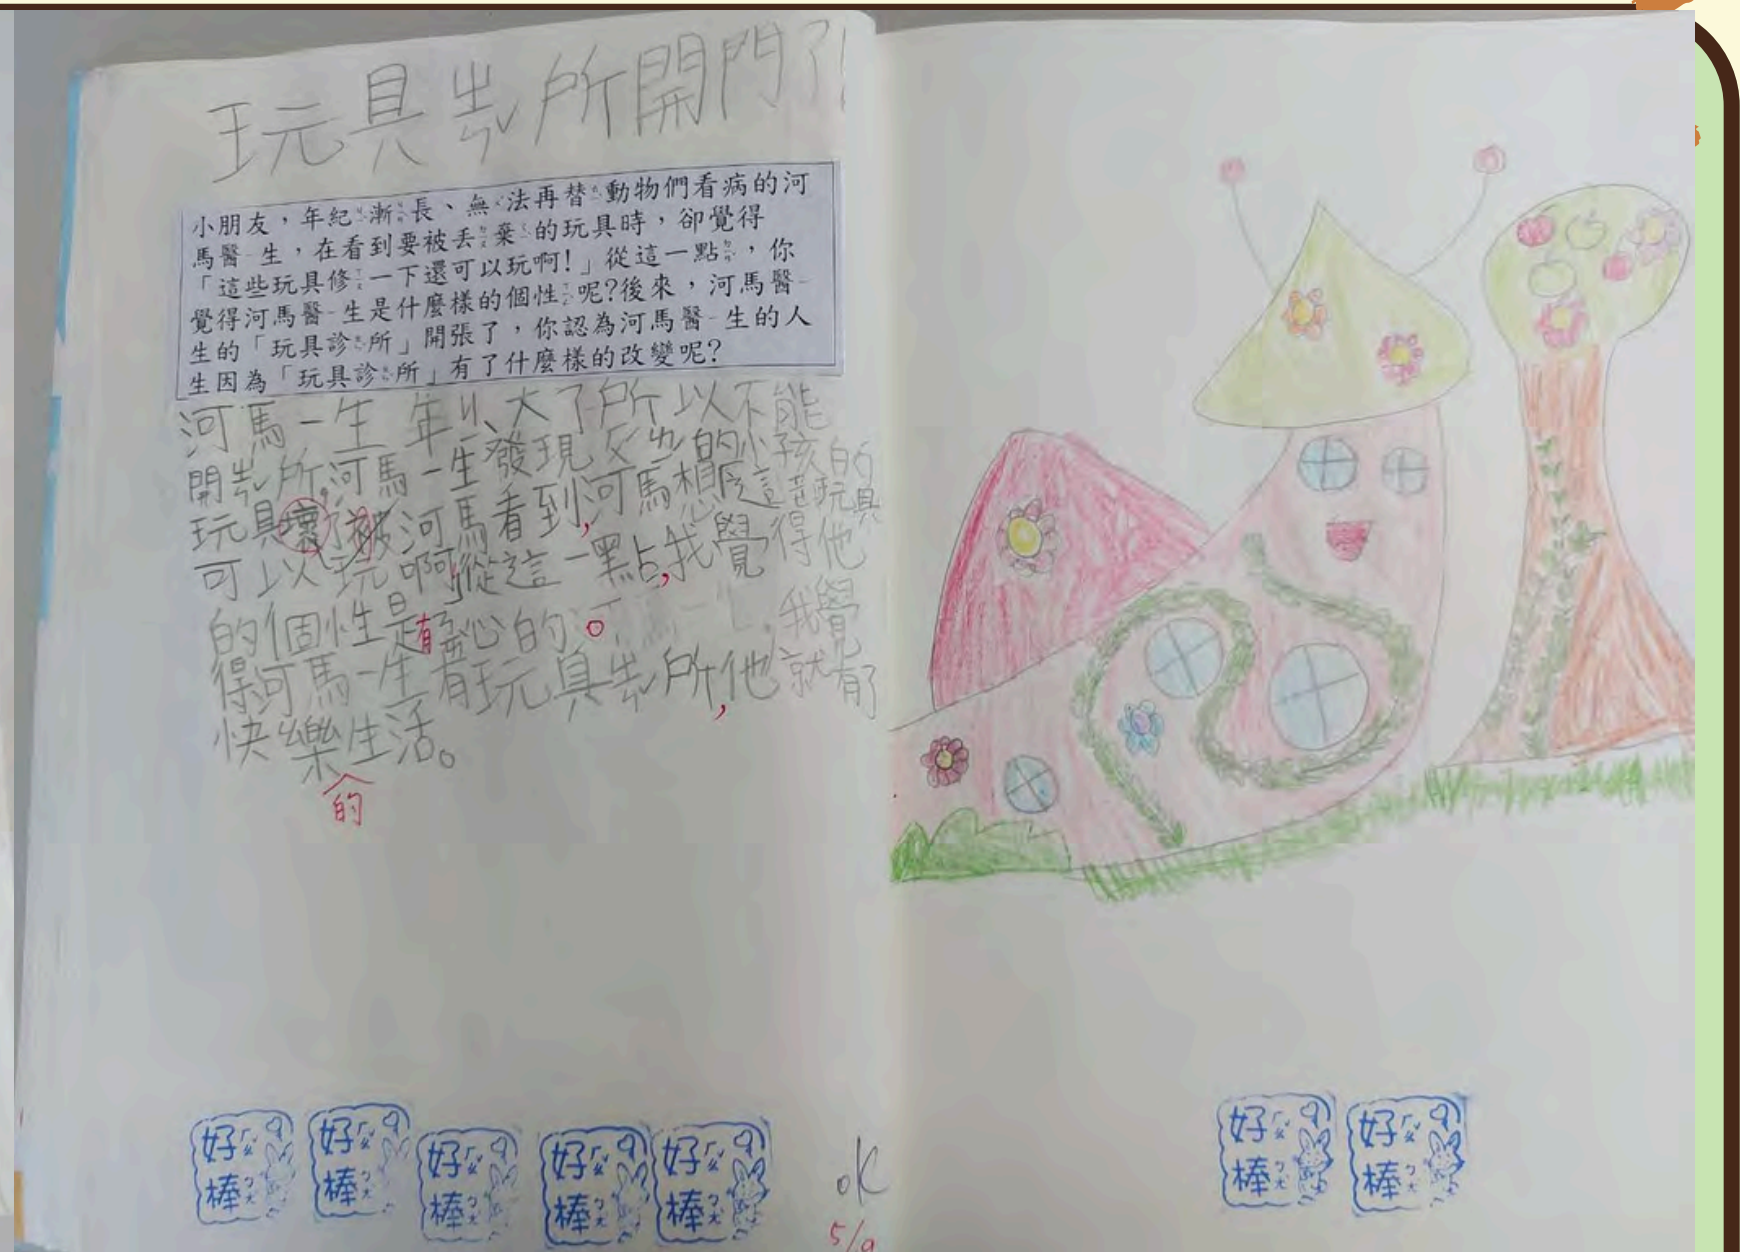 玩具ㄓㄣˇ所開門了!
小朋友，年紀漸長、無法再替動物們看病的河
馬醫生，在看到要被丟棄的玩具時，卻覺得
「這些玩具修一下還可以玩啊!」從這一點，你
覺得河馬醫生是什麼樣的個性呢?後來，河馬醫
生的「玩具診所」開張了，你認為河馬醫生的人
生因為「玩具診所」有了什麼樣的改變呢?
河馬ㄧ生年ㄐㄧˋ大了所以不能
開ㄓㄣˇ所,河馬ㄧ生發現
的小孩的
玩具壞 被河馬看到,河馬想 這 玩具
可以玩啊從這一點,我覺得他
的個性是有 心的。我覺
得河馬ㄧ生有玩具ㄓㄣˇ所,他就有了
快樂生活。
的
好ㄏㄠˇ棒ㄅㄤˋ
好ㄏㄠˇ棒ㄅㄤˋ
好ㄏㄠˇ棒ㄅㄤˋ
好ㄏㄠˇ棒ㄅㄤˋ
好ㄏㄠˇ棒ㄅㄤˋ
ok
5/9
好ㄏㄠˇ棒ㄅㄤˋ
好ㄏㄠˇ棒ㄅㄤˋ